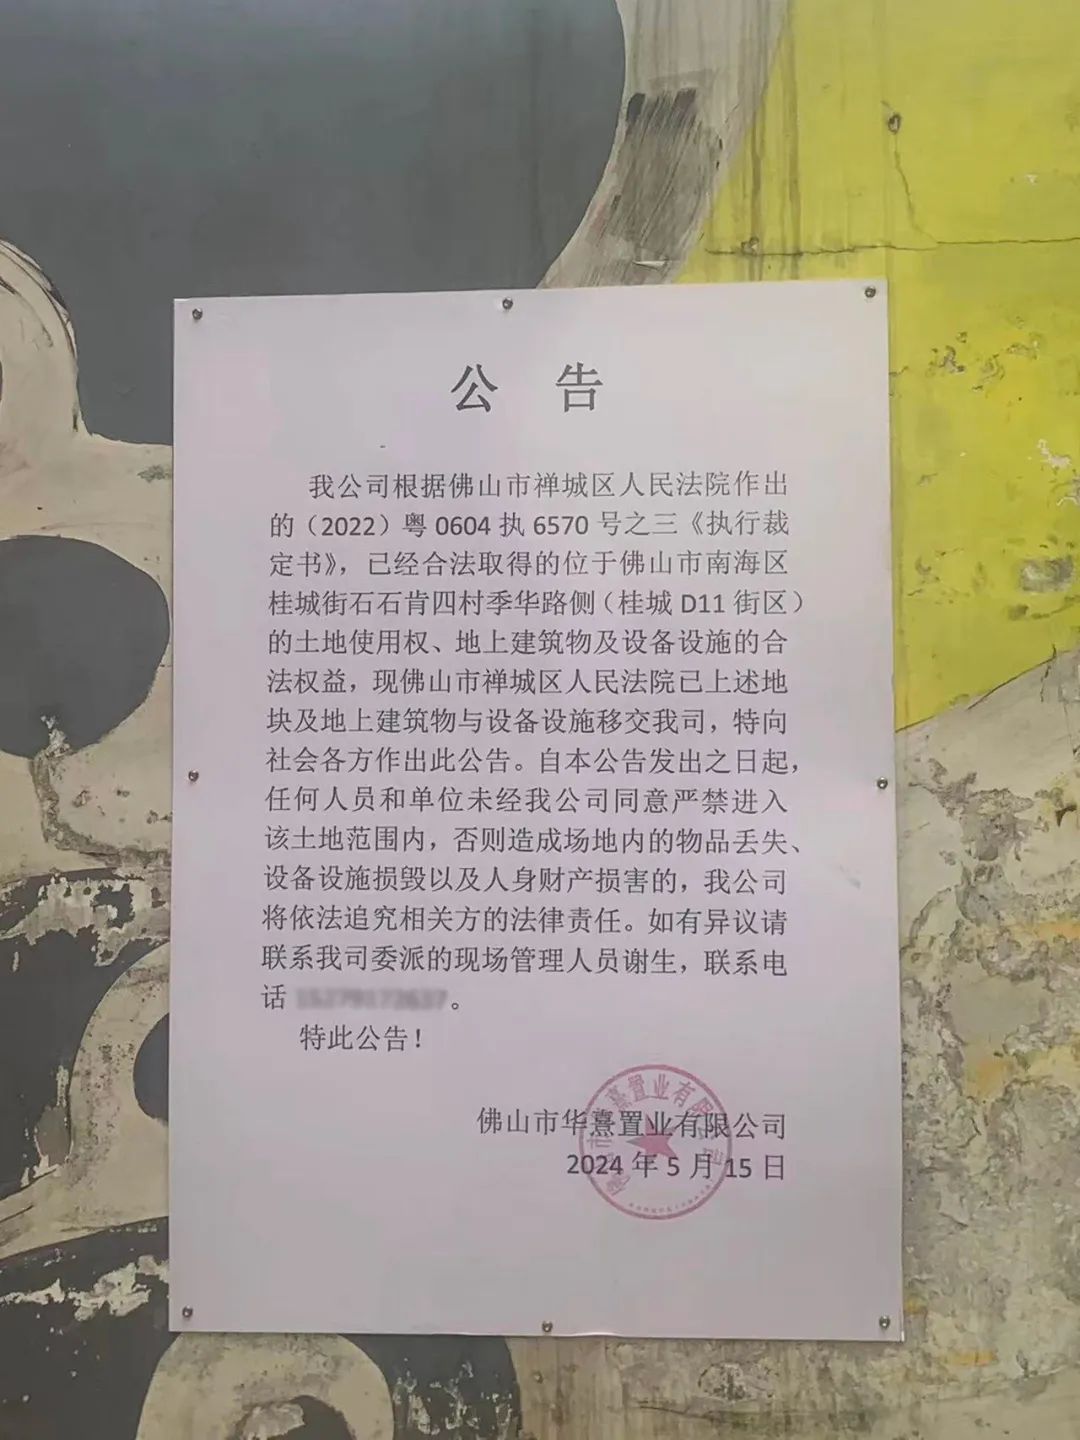 公 告
我公司根据佛山市禅城区人民法院作出
的（2022）粤 0604 执 6570 号之三《执行裁
定书》，已经合法取得的位于佛山市南海区
桂城街石石肯四村季华路侧（桂城 D11 街区）
的土地使用权、地上建筑物及设备设施的合
法权益，现佛山市禅城区人民法院已上述地
块及地上建筑物与设备设施移交我司，特向
社会各方作出此公告。自本公告发出之日起，
任何人员和单位未经我公司同意严禁进入
该土地范围内，否则造成场地内的物品丢失、
设备设施损毁以及人身财产损害的，我公司
将依法追究相关方的法律责任。如有异议请
联系我司委派的现场管理人员谢生，联系电
话 。
特此公告！
佛山市华熹置业有限公司
2024 年 5 月 15 日